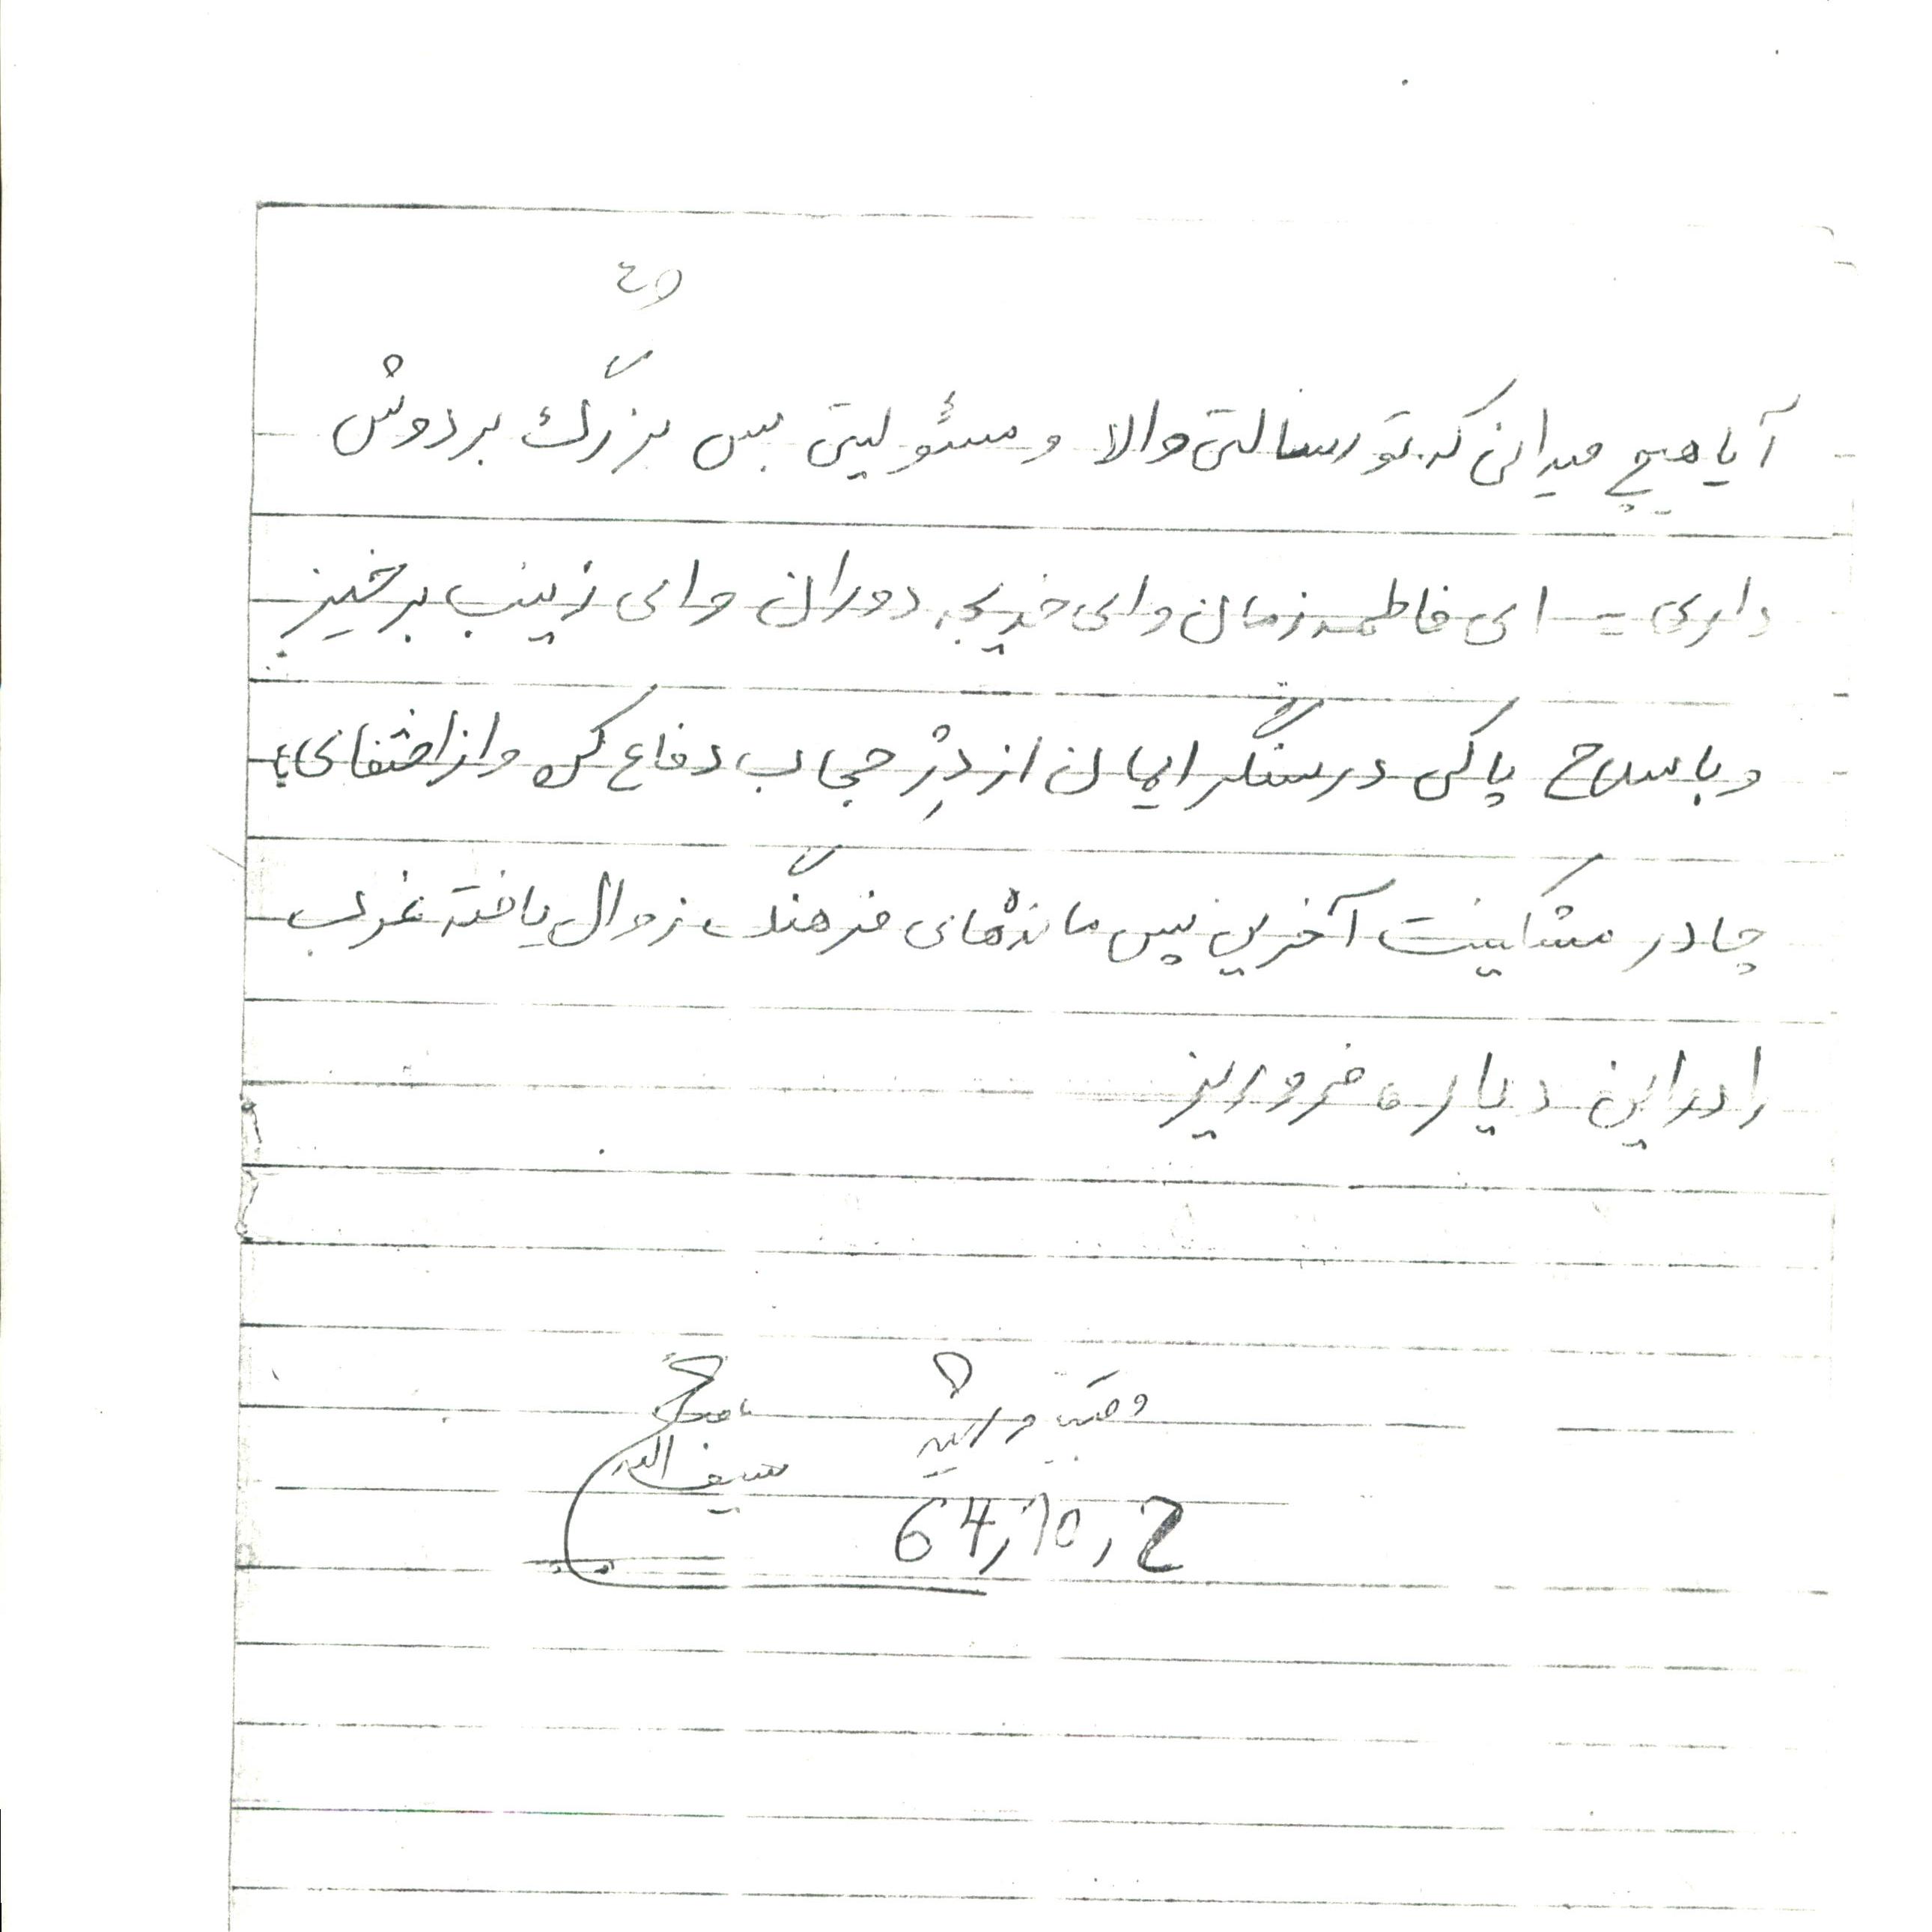 آیا هیچ میدانی که تو رسالتی والا و مسئولیتی بس بزرگ بر دوش
داری = ای فاطمه زمان و ای خدیجه دوران و ای زینب برخیز
و با سلاح پاکی در سنگر ایمان از دِژ حجاب دفاع کن و از
چادر مشکینت آخرین پس مانده‌های فرهنگ زوال یافته غرب
را در این دیار فرو ریز
سیف الله
64,10,2